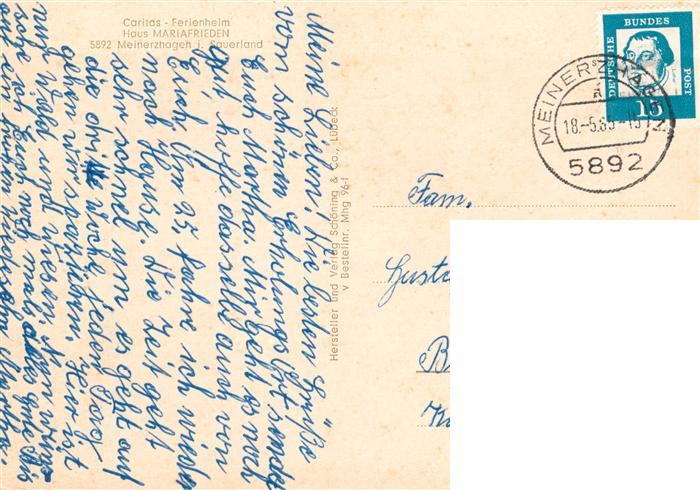 Caritas - Ferienheim
Haus MARIAFRIEDEN
5892 Meinerzhagen i. Sauerland
Meine Lieben! Die besten Grüße
vom schönen Erholungsort sendet
Euch Martha. Mir geht es noch
gut hoffe dasselbe auch von
Euch. Am 25. fahre ich wieder
nach Hause. Die Zeit geht
sehr schnell um es geht auf
die dritte Woche jeden Tag
gehn wir spazieren, hier ist
nur Wald und Wiesen. Nun wün-
sche ich Euch noch mal alles gute bis
Hersteller und Verlag Schöning & Co., Lübeck
v Bestellnr. Mhg 96-f
DEUTSCHE
BUNDES
POST
15
MEINERZHAGEN
18.-5.65
5892
Fam.